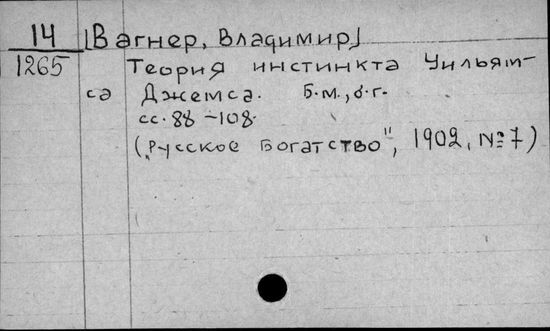 14 [Вагнер, Владимир]
1265 Теория инстинкта Уильям-
са Джемса. Б.м., б.г.
сс. 88-108.
(„Русское Богатство", 1902, №7)